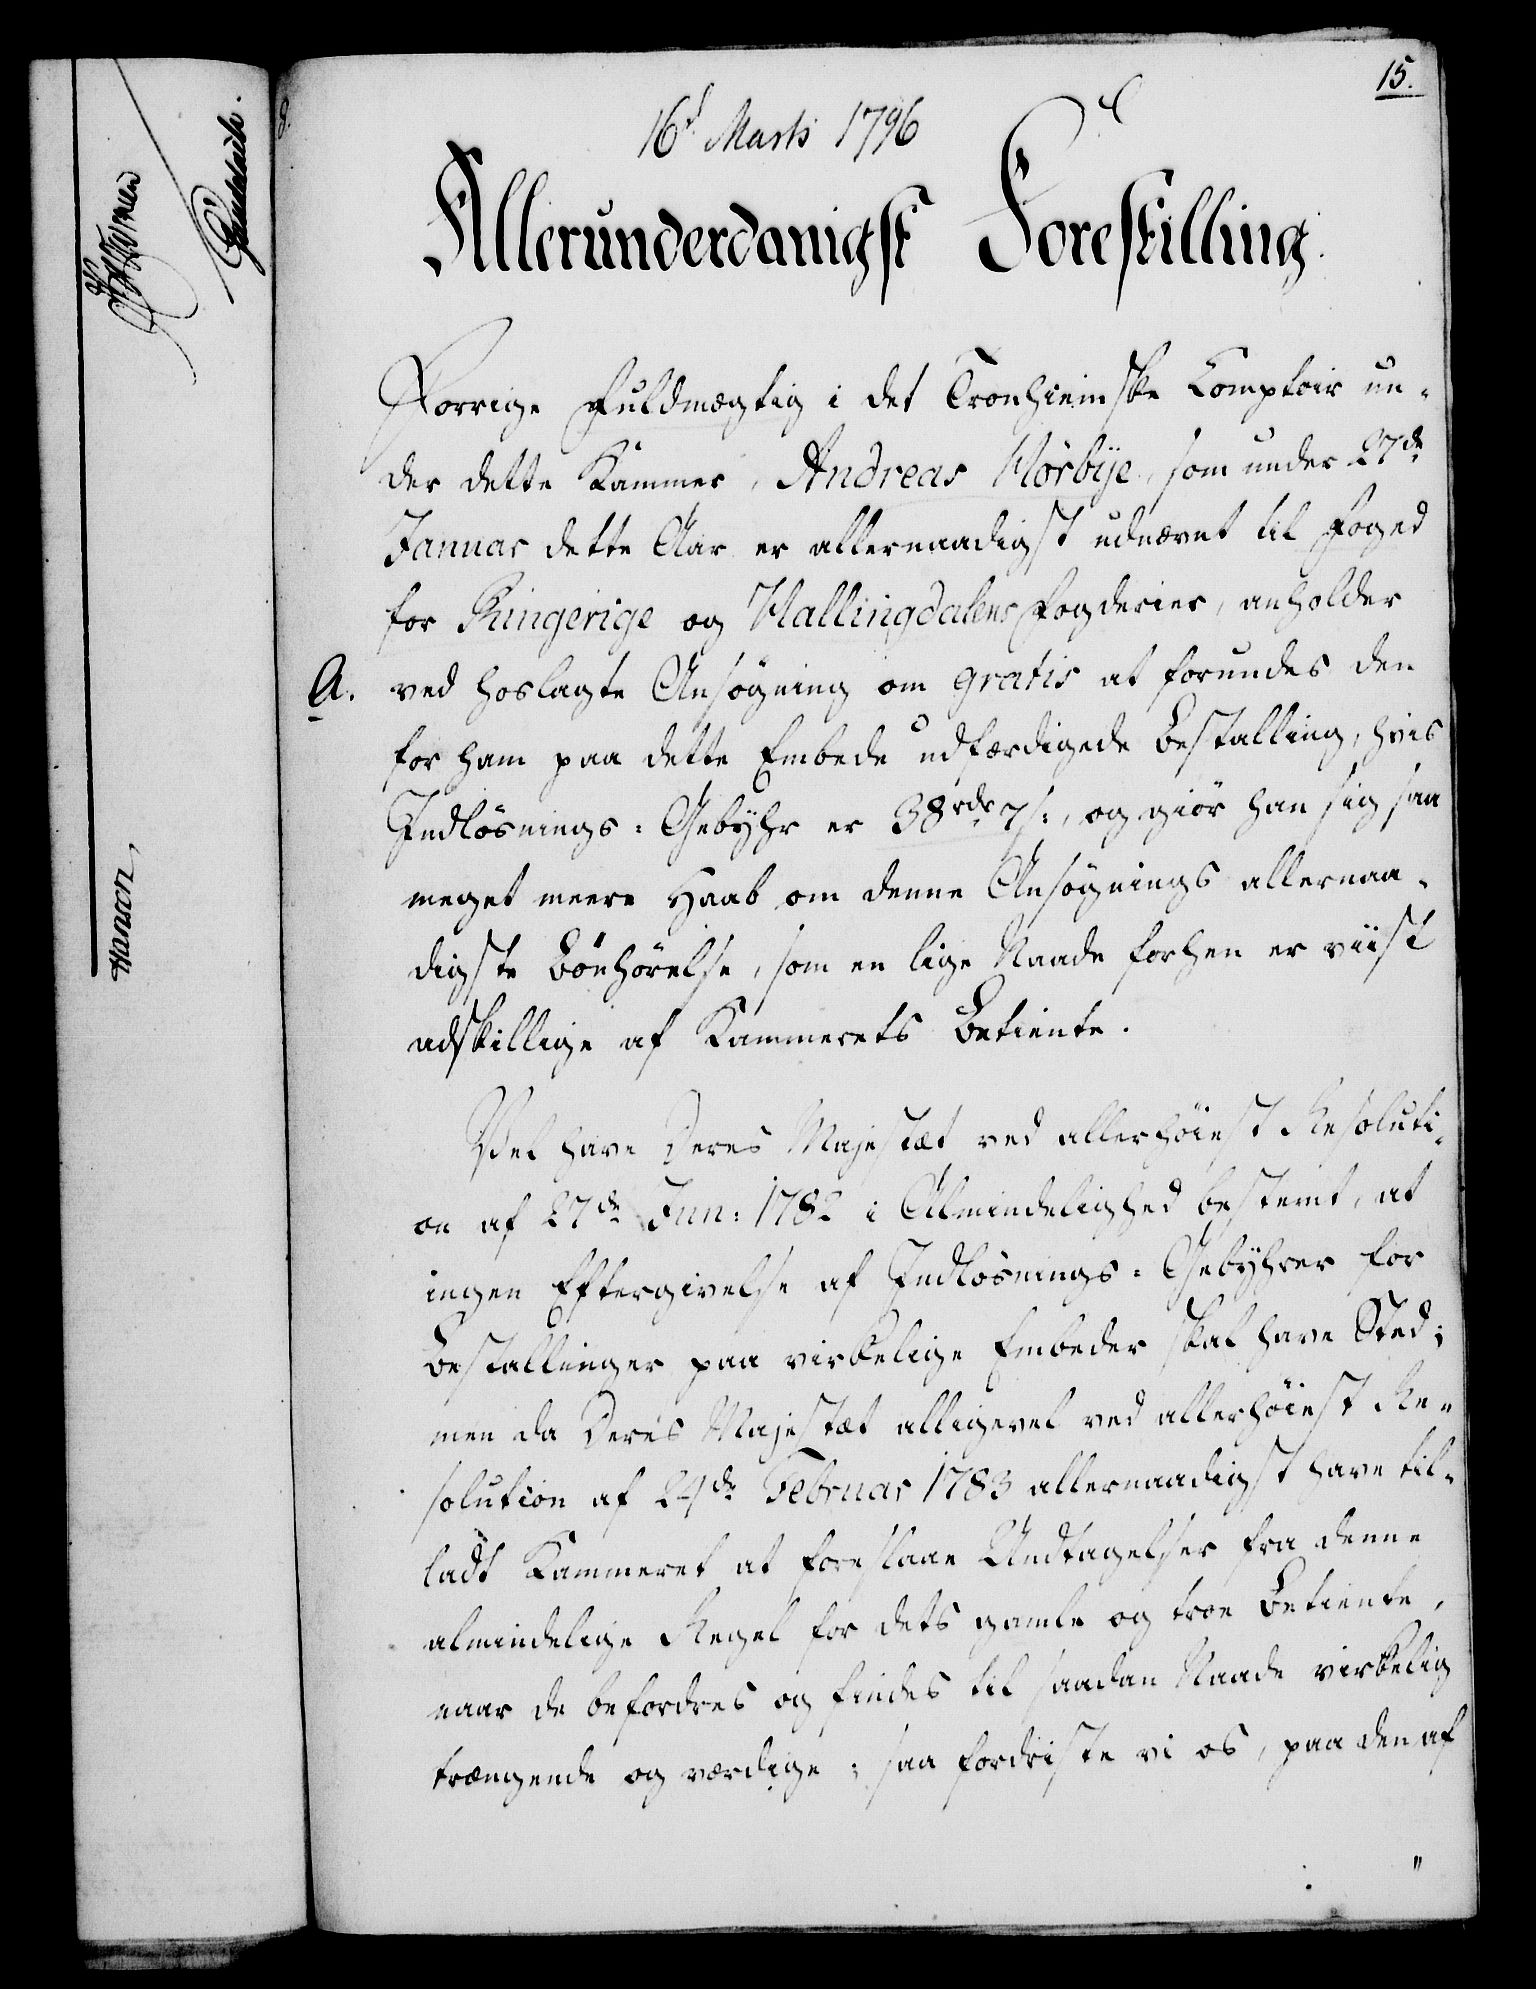 15.
16d Marts 1796
Allerunderdanigst Forestilling.
Forrige Fuldmægtig i det Tronhiemske Comptoir un-
der dette Kammer, Andreas Hörbye, som under 27de
Januar dette Aar er allernaadigst udnævnt til Foged
for Ringerige og Hallingdalens Fogderier, anholder
A. ved hoslagte Ansøgning om gratis at forundes den
for ham paa dette Embede udfærdigede Bestalling, hvis
Indløsnings-Gebyhr er 38 rdr 7 s:, og giör han sig saa
meget meere Haab om denne Ansøgnings allernaa-
digste Bönhörelse, som en lige Naade forhen er viist
adskillige af Kammerets Betiente.
Vel have Deres Majestæt ved allerhöiest Resoluti-
on af 27de Jun: 1782 i Almindelighed bestemt, at
ingen Eftergivelse af Indløsnings-Gebyhrer for
Bestallinger paa virkelige Embeder skal have Sted;
men da Deres Majestæt alligevel ved allerhöiest Re-
solution af 24de Februar 1783 allernaadigst have til-
ladt Kammeret at foreslaae Undtagelser fra denne
almindelige Regel for dets gamle og troe Betiente,
naar de befordres og findes til saadan Naade virkelig
trængende og værdige; saa fordriste vi os, paa den af
Hansen